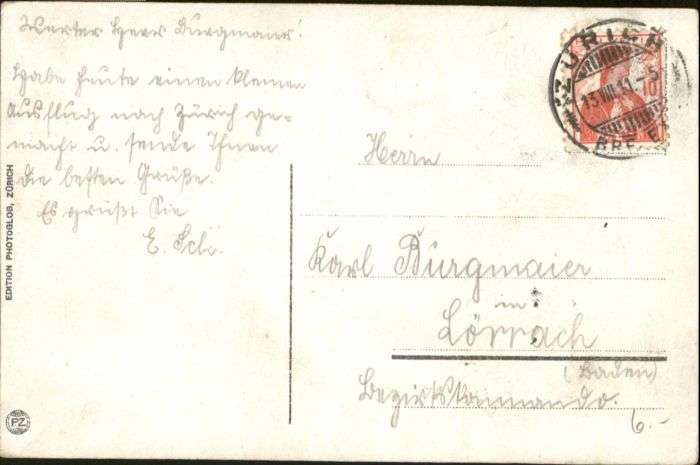 Werter Herr Burgmaier!
Habe heute einen kleinen
Ausflug nach Zürich ge-
macht u. sende Ihnen
die besten Grüße.
Es grüßt Sie
E. Sch.
EDITION PHOTOGLOB, ZÜRICH
PZ
ZÜRICH
13.VIII.11.-5
10
Herrn
Karl Burgmaier
in
Lörrach
(Baden)
Bezirkskommando.
6.-